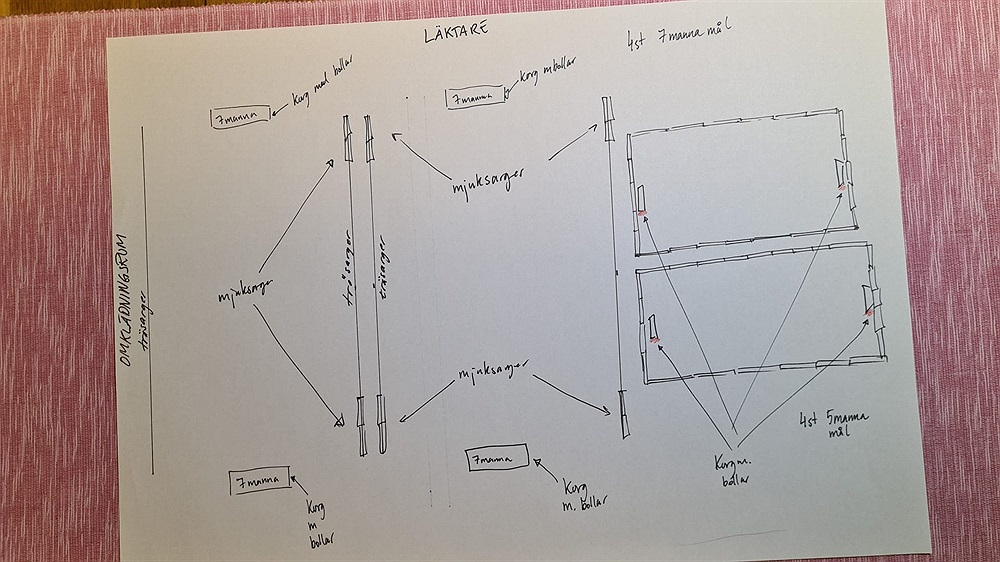 LÄKTARE
4st 7manna mål
Korg med bollar
7manna
Korg m bollar
7manna
mjuksarger
mjuksarger
träsarger
träsarger
OMKLÄDNINGSRUM
träsarger
mjuksarger
4st 5manna
mål
7manna
Korg
m
bollar
7manna
Korg
m. bollar
Korg m.
bollar